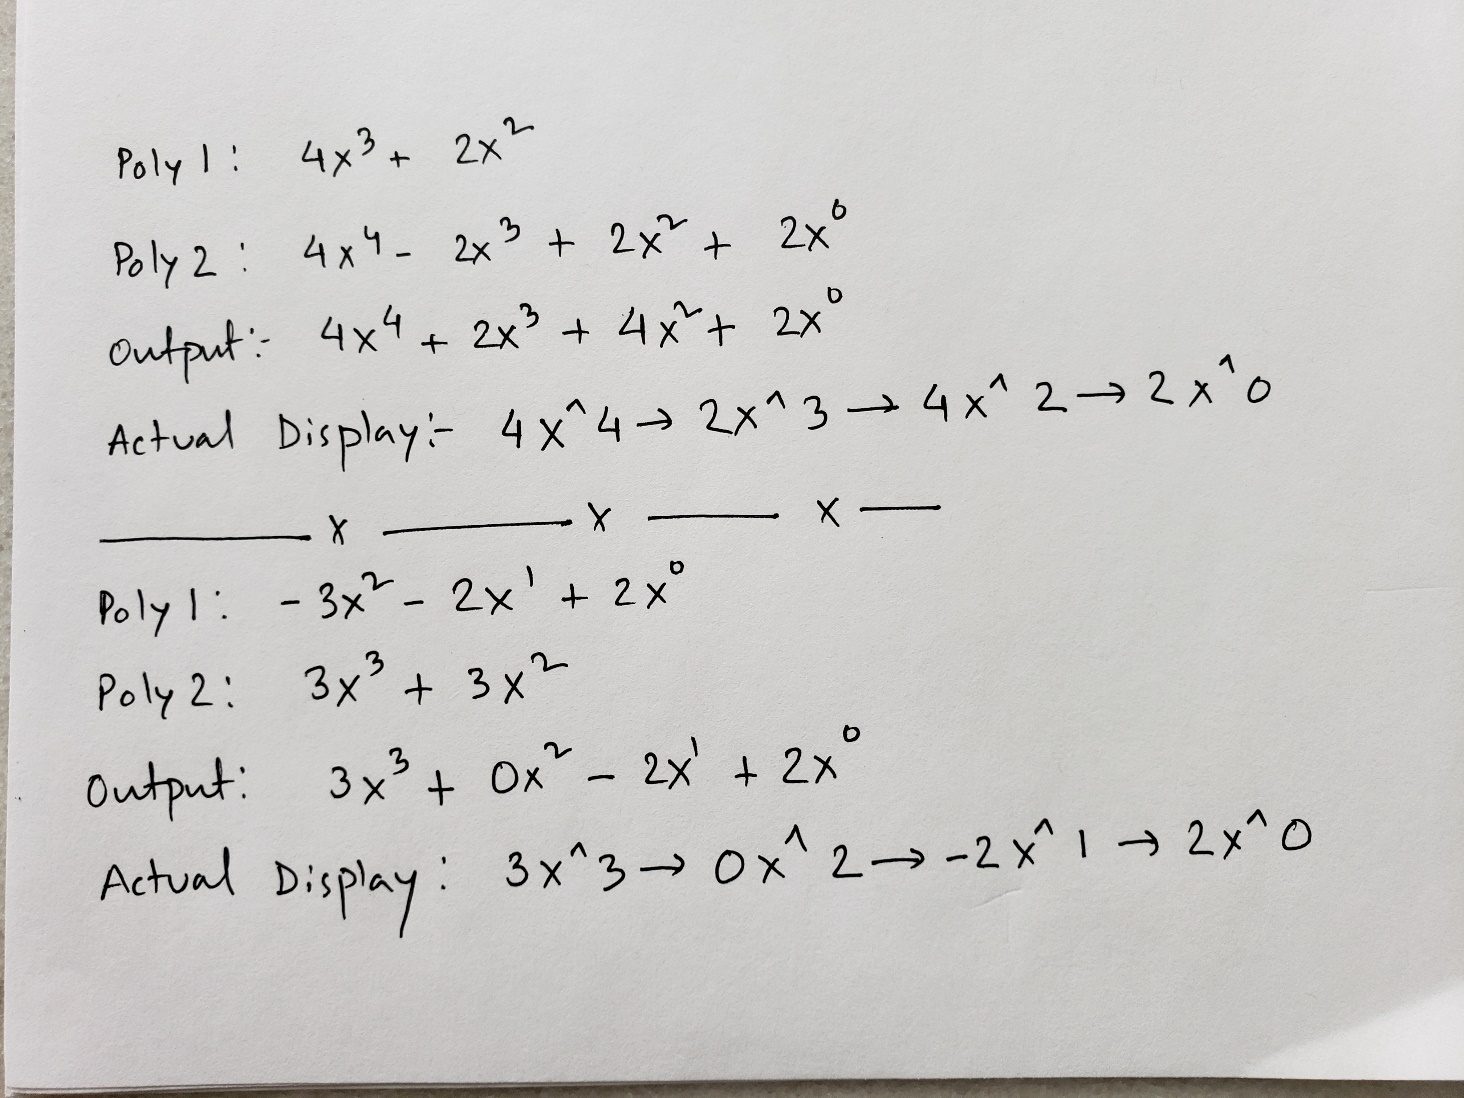 Poly 1: 4x³ + 2x²
Poly 2: 4x⁴ - 2x³ + 2x² + 2x⁰
Output:- 4x⁴ + 2x³ + 4x² + 2x⁰
Actual Display:- 4x^4 → 2x^3 → 4x^2 → 2x^0
——— x ——— x ——— x —
Poly 1: -3x² - 2x¹ + 2x⁰
Poly 2: 3x³ + 3x²
Output: 3x³ + 0x² - 2x¹ + 2x⁰
Actual Display: 3x^3 → 0x^2 → -2x^1 → 2x^0